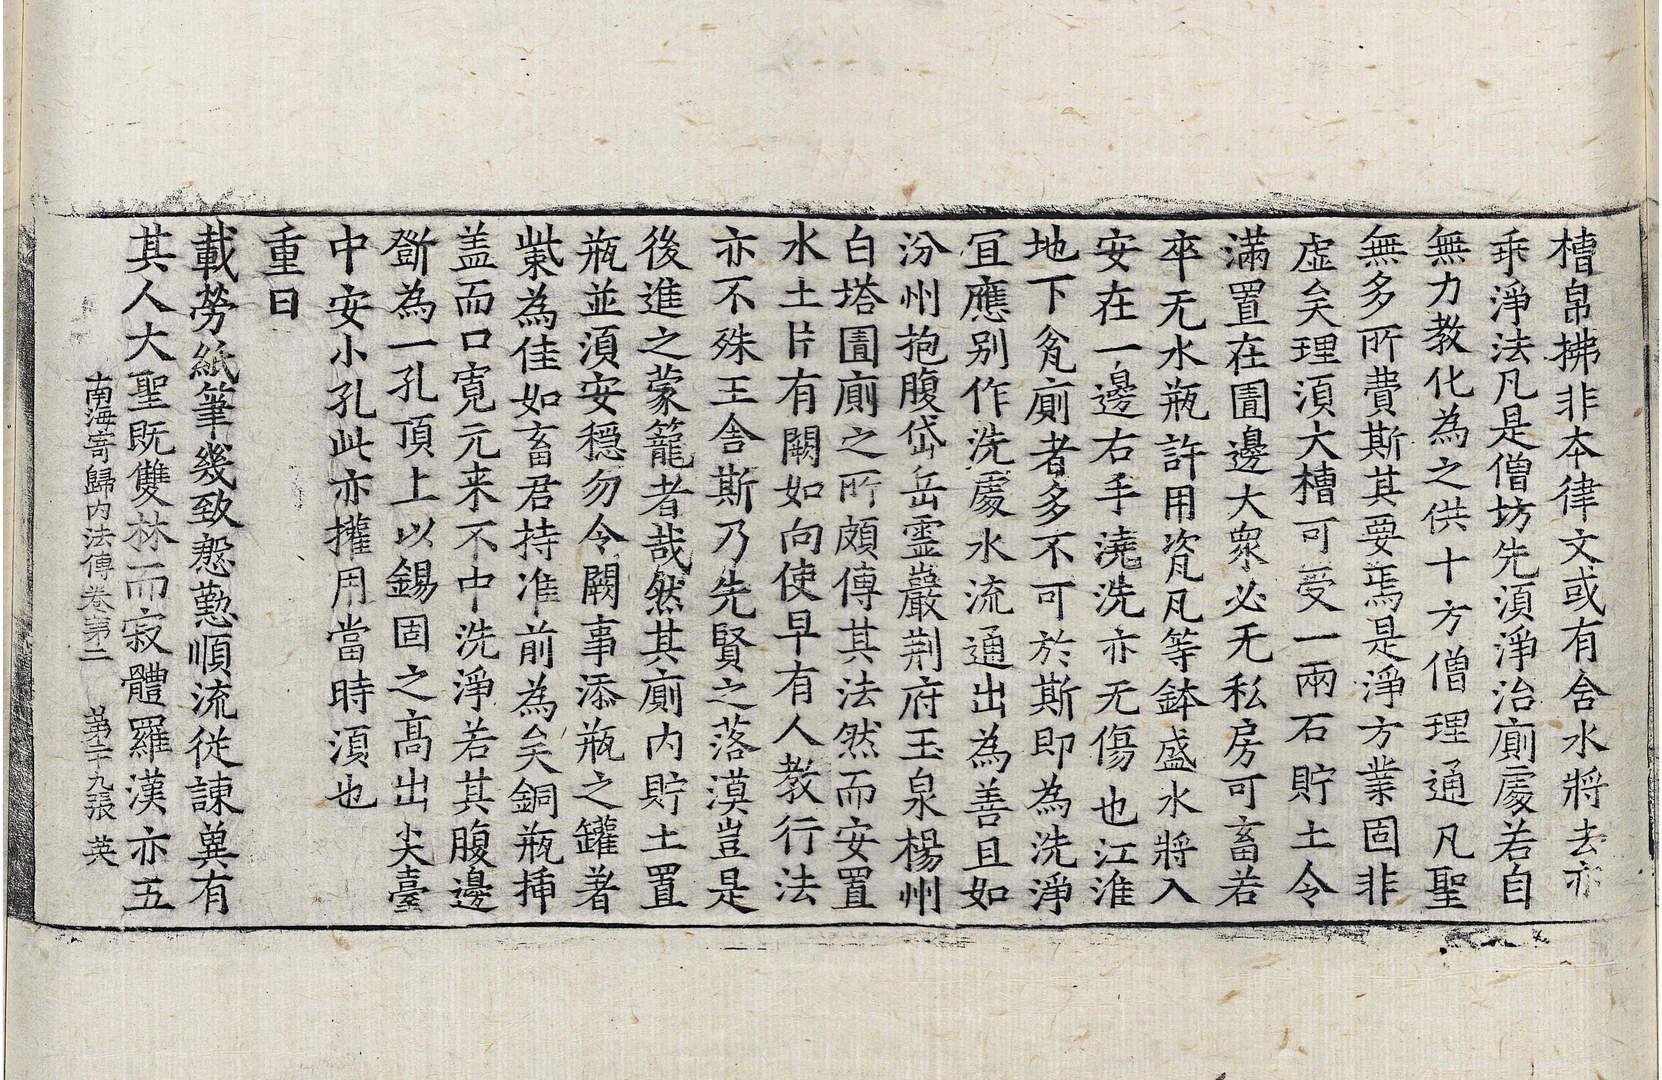 槽帛拂非本律文或有舍水將去亦
乖淨法凡是僧坊先湏淨治廁處若自
無力教化為之供十方僧理通凡聖
無多所費斯其要焉是淨方業固非
虛矣理湏大槽可受一兩石貯土令
滿置在圊邊大衆必无私房可畜若
卒无水瓶許用瓷瓦等鉢盛水將入
安在一邊右手澆洗亦无傷也江淮
地下瓮廁者多不可於斯即為洗淨
冝應别作洗處水流通出為善且如
汾州抱腹岱岳靈巖荆府玉泉楊州
白塔圊廁之所頗傳其法然而安置
水土片有闕如向使早有人教行法
亦不殊王舍斯乃先賢之落漠豈是
後進之蒙籠者哉然其廁内貯土置
瓶並湏安穩勿令闕事添瓶之罐著
觜為佳如畜君持准前為矣銅瓶挿
盖而口寬元来不中洗淨若其腹邊
鐙為一孔頂上以錫固之高出尖臺
中安小孔此亦㩲用當時湏也
重曰
載勞紙筆幾致慇懃順流從諫兾有
其人大聖既雙林而寂體羅漢亦五
南海寄歸内法傳卷第二 第二十九張 英